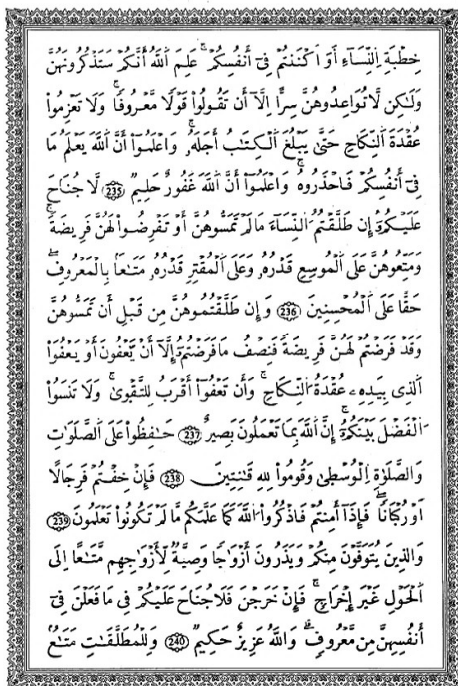 خِطْبَةِ اِ۬لنِّسَآءِ اَ۬وَ اَكْنَنتُمْ فِےٓ أَنفُسِكُمْ عَلِمَ اَ۬للَّهُ أَنَّكُمْ سَتَذْكُرُونَهُنَّ
وَلَٰكِن لَّا تُوَاعِدُوهُنَّ سِرّاً اِلَّآ أَن تَقُولُواْ قَوْلاً مَّعْرُوفاً وَلَا تَعْزِمُواْ
عُقْدَةَ اَ۬لنِّكَاحِ حَتَّىٰ يَبْلُغَ اَ۬لْكِتَٰبُ أَجَلَهُۥ وَاعْلَمُوٓاْ أَنَّ اَ۬للَّهَ يَعْلَمُ مَا
فِےٓ أَنفُسِكُمْ فَاحْذَرُوهُ وَاعْلَمُوٓاْ أَنَّ اَ۬للَّهَ غَفُورٌ حَلِيمٌ 235 لَّا جُنَاحَ
عَلَيْكُمُۥٓ إِن طَلَّقْتُمُ اُ۬لنِّسَآءَ مَا لَمْ تَمَسُّوهُنَّ أَوْ تَفْرِضُواْ لَهُنَّ فَرِيضَةً
وَمَتِّعُوهُنَّ عَلَى اَ۬لْمُوسِعِ قَدْرُهُۥ وَعَلَى اَ۬لْمُقْتِرِ قَدْرُهُۥ مَتَٰعاَۢ بِالْمَعْرُوفِ
حَقّاً عَلَى اَ۬لْمُحْسِنِينَ 236 وَإِن طَلَّقْتُمُوهُنَّ مِن قَبْلِ أَن تَمَسُّوهُنَّ
وَقَدْ فَرَضْتُمْ لَهُنَّ فَرِيضَةً فَنِصْفُ مَا فَرَضْتُمُۥٓ إِلَّآ أَنْ يَّعْفُونَ أَوْ يَعْفُوَاْ
اَ۬لَّذِے بِيَدِهِۦ عُقْدَةُ اُ۬لنِّكَاحِ وَأَن تَعْفُوٓاْ أَقْرَبُ لِلتَّقْوٜىٰ وَلَا تَنسَوُاْ
اُ۬لْفَضْلَ بَيْنَكُمُۥٓ إِنَّ اَ۬للَّهَ بِمَا تَعْمَلُونَ بَصِيرٌ 237 حَٰفِظُواْ عَلَى اَ۬لصَّلَوَٰتِ
وَالصَّلَوٰةِ اِ۬لْوُسْطٜىٰ وَقُومُواْ لِلهِ قَٰنِتِينَ 238 فَإِنْ خِفْتُمْ فَرِجَالاً
اَوْ رُكْبَاناً فَإِذَآ أَمِنتُمْ فَاذْكُرُواْ اُ۬للَّهَ كَمَا عَلَّمَكُم مَّا لَمْ تَكُونُواْ تَعْلَمُونَ 239
وَالذِينَ يُتَوَفَّوْنَ مِنكُمْ وَيَذَرُونَ أَزْوَٰجاً وَصِيَّةٌ لِّأَزْوَٰجِهِم مَّتَٰعاً اِلَى
اَ۬لْحَوْلِ غَيْرَ إِخْرَاجٍ فَإِنْ خَرَجْنَ فَلَا جُنَاحَ عَلَيْكُمْ فِے مَا فَعَلْنَ فِےٓ
أَنفُسِهِنَّ مِن مَّعْرُوفٍ وَاللَّهُ عَزِيزٌ حَكِيمٌ 240 وَلِلْمُطَلَّقَٰتِ مَتَٰعُۢ